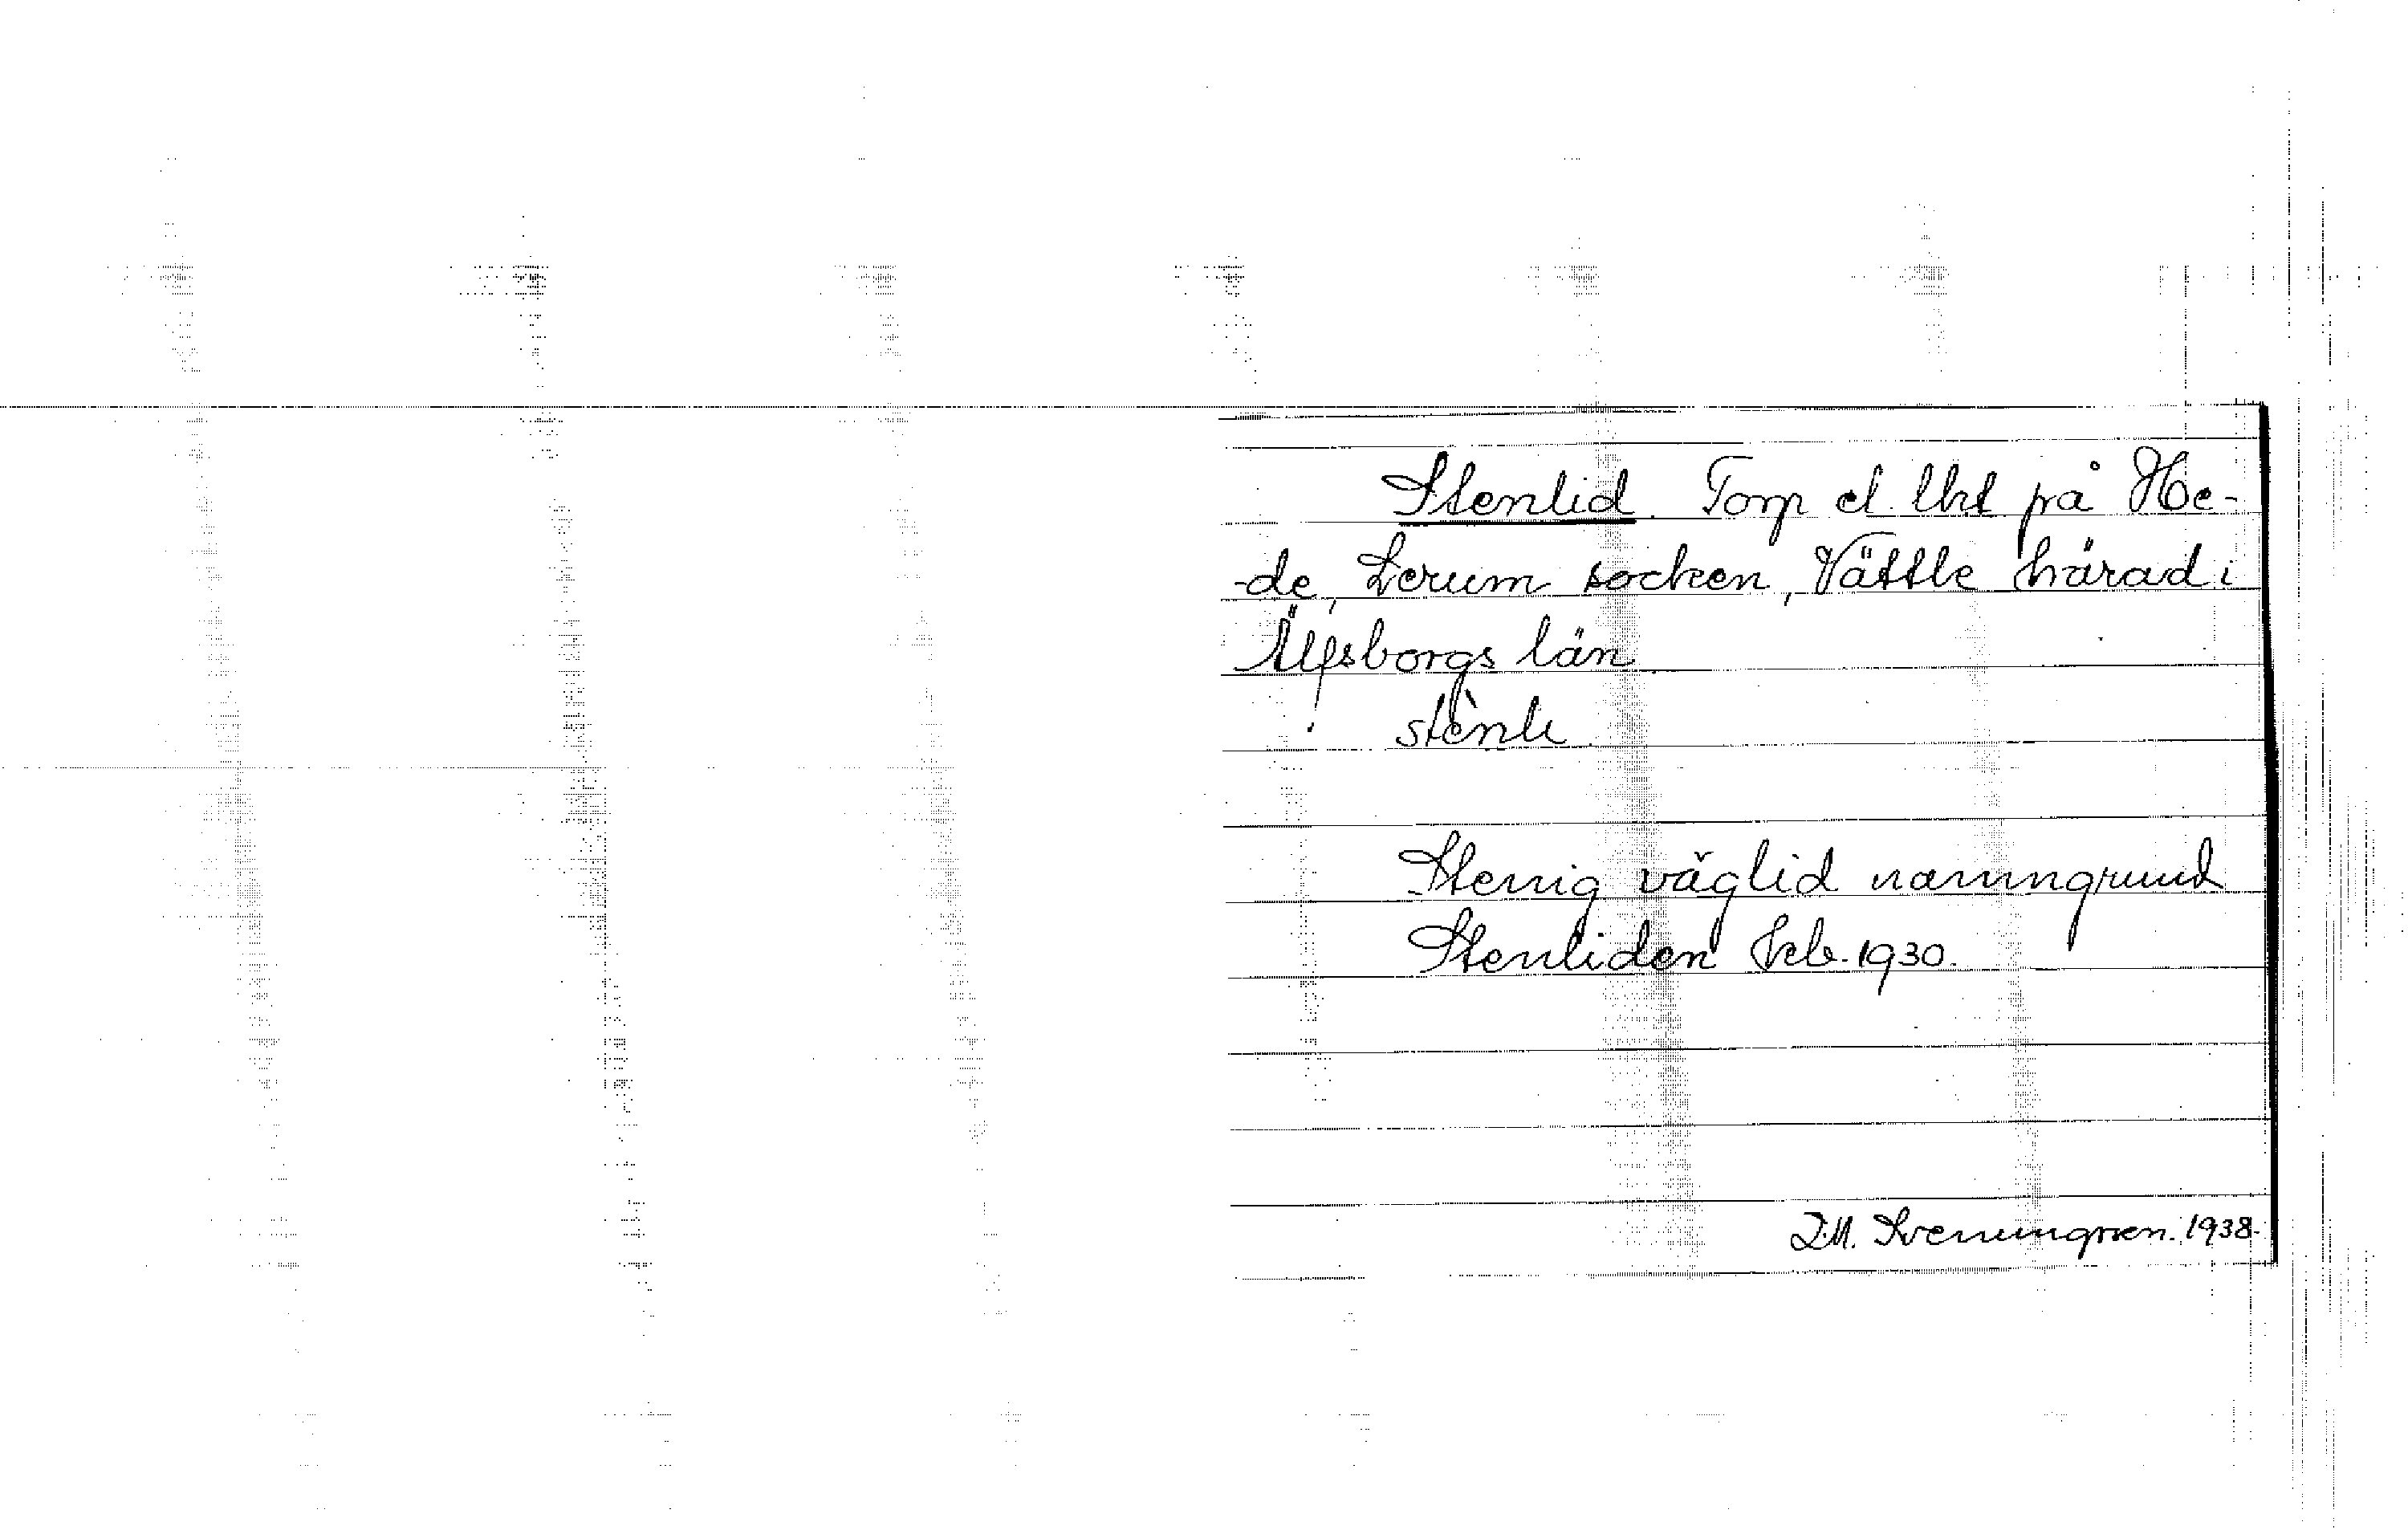 Stenlid. Torp el. lht på He-
-de, Lerum socken, Vättle härad i
Älfsborgs län
stènli
Stenig väglid namngrund
Stenliden Jrb. 1930.
I.M. Svenungsson. 1938.